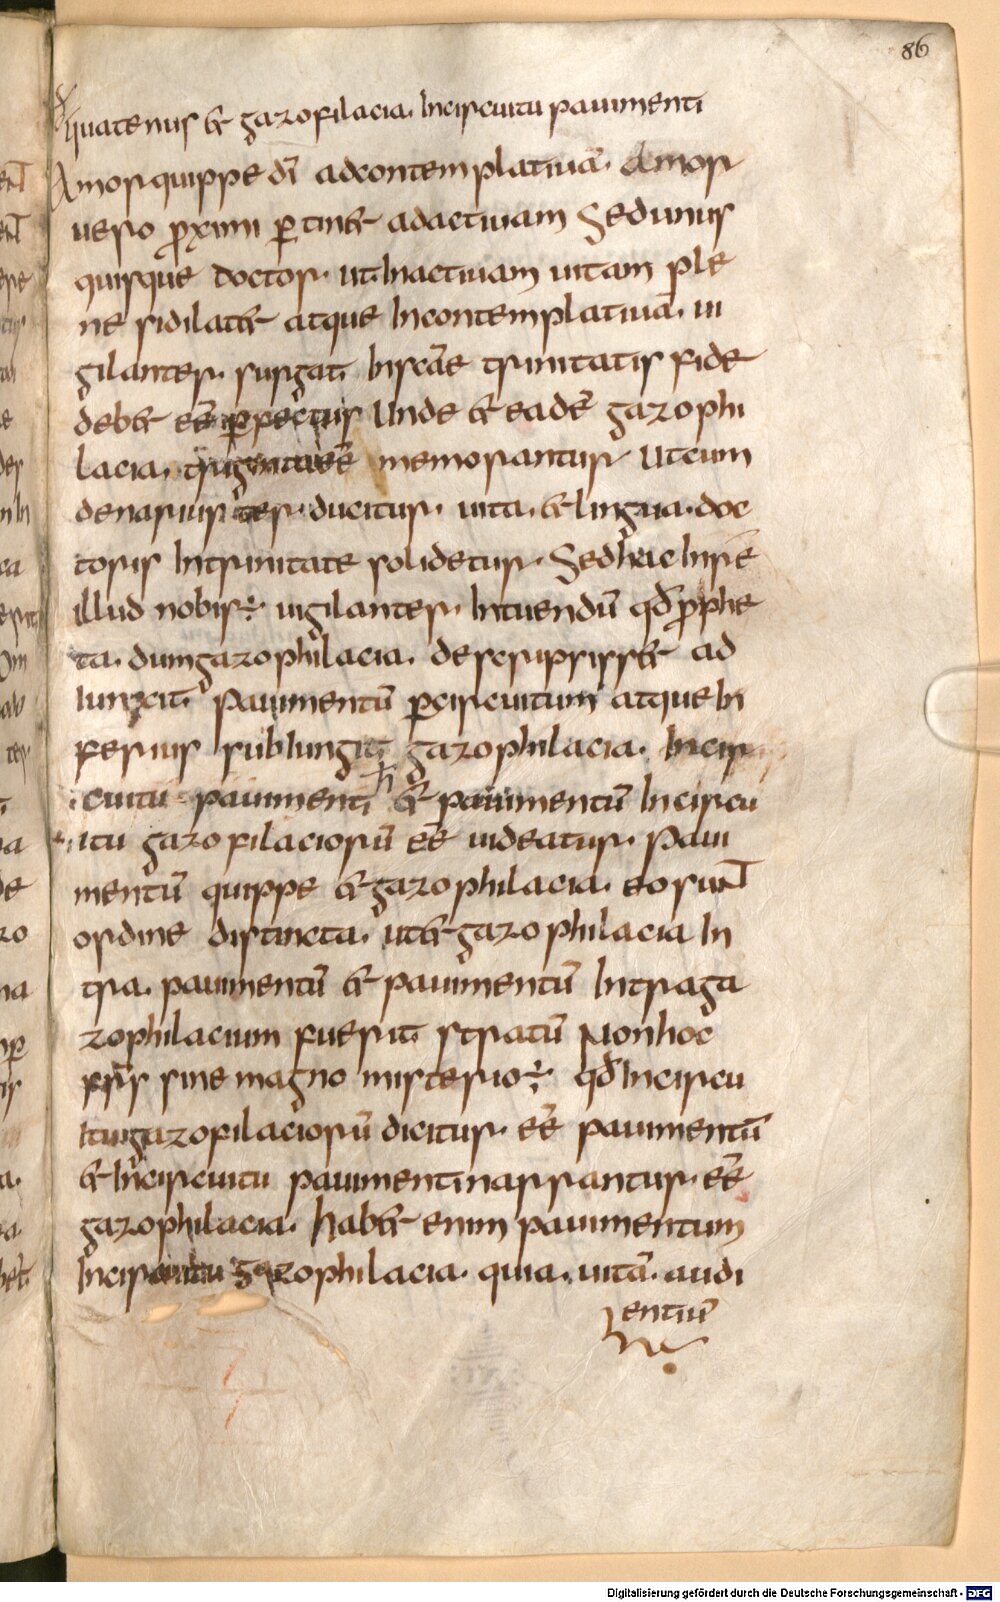 86
quatenus & gazofilacia. In circuitu pauimenti
Amor quippe dī ad contemplatiuā. Amor
uero p̱ximi ꝑtin& ad actiuam Sed unus
quisque doctor. ut In actiuam uitam ple
ne se dilat& atque In contemplatiuā. ui
gilanter. surgat In scāe trinitatis fide
deb& eē ꝑfectus Unde & eadē gazophi
lacia. triginta eē memorantur Ut cum
denarius ter. ducitur. uita. & lingua. doc
toris In trinitate solidetur. Sed hac In re
illud nobis: uigilanter. Intuendū qđ prophe
ta. dum gazophilacia. descripsiss& ad
Iunxit Pauimentū ꝑ circuitum atque In
ferius sub Iungit gazophilacia. In cir
cuitu pauimenti h̄ & pauimentū In circu
itu gazofilaciorū eē uideatur. Paui
mentū quippe & gazophilacia. eo sunt
ordine distincta. ut & gazophilacia In
tra. pauimentū & pauimentū Intra ga
zophilacium fuerit stratū Non hoc
frs̄ sine magno misterio: qđ In circu
itu gazofilaciorū dicitur. eē pauimentū
& In circuitu pauimenti narrantur. eē
gazophilacia. hab& enim pauimentum
In circuitu gazophilacia. quia. uitā. audi
entiū
Digitalisierung gefördert durch die Deutsche Forschungsgemeinschaft - DFG